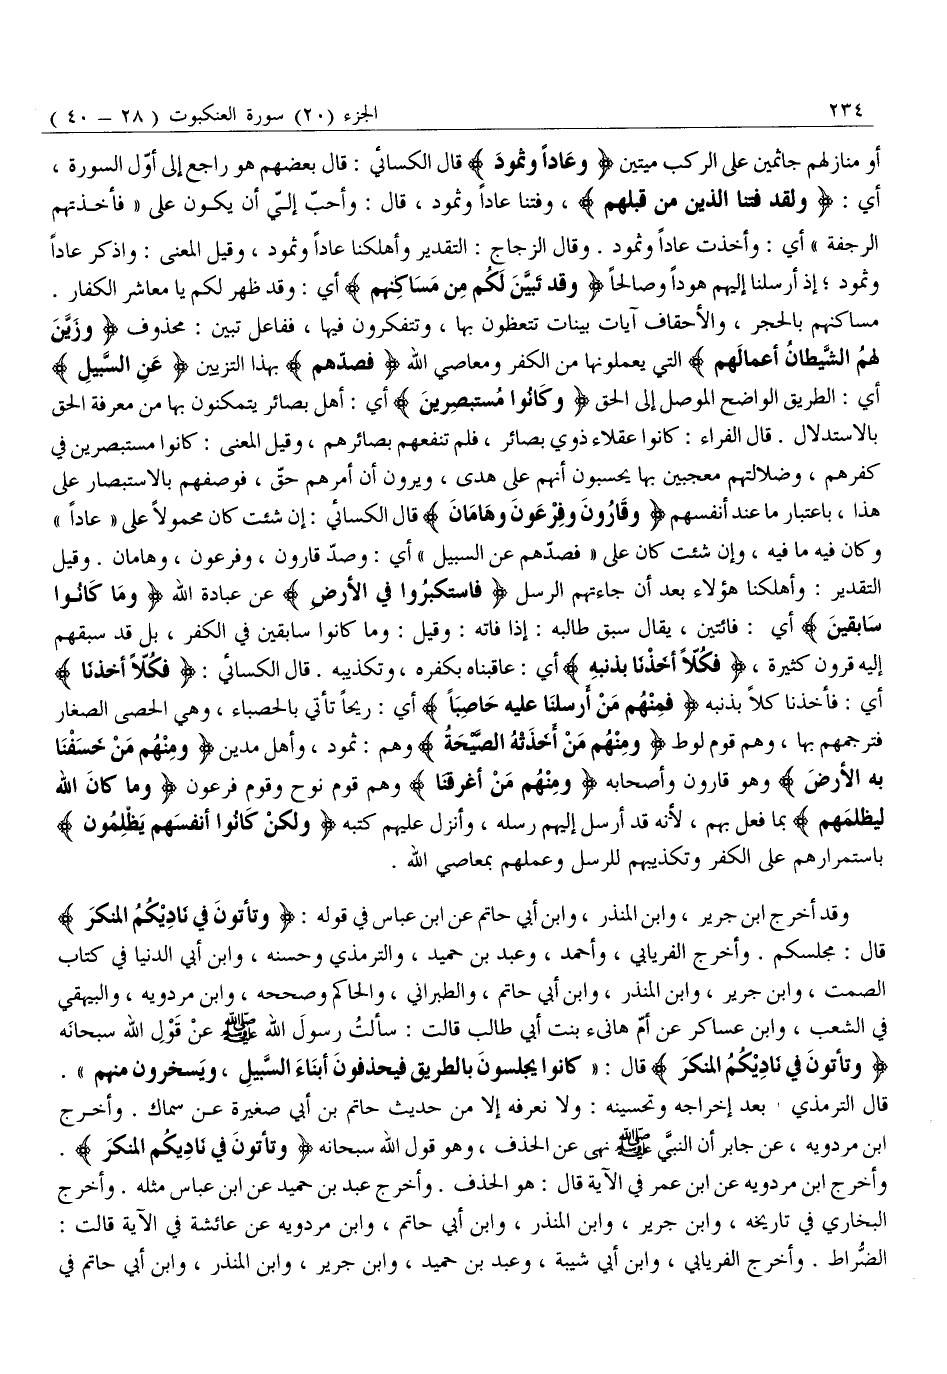 ٢٣٤ الجزء (٢٠) سورة العنكبوت ( ٢٨ – ٤٠ )
أو منازلهم جاثمين على الركب ميتين ﴿ وعَاداً وثمودَ ﴾ قال الكسائي : قال بعضهم هو راجع إلى أوّل السورة ،
أي : ﴿ ولقد فتنا الذين من قبلهم ﴾ ، وفتنا عاداً وثمود ، قال : وأحبّ إليّ أن يكون على « فأخذتهم
الرجفة » أي : وأخذت عاداً وثمود . وقال الزجاج : التقدير وأهلكنا عاداً وثمود ، وقيل المعنى : واذكر عاداً
وثمود ؛ إذ أرسلنا إليهم هوداً وصالحاً ﴿ وقد تبيَّنَ لَكُم مِن مَسَاكِنهم ﴾ أي : وقد ظهر لكم يا معاشر الكفار .
مساكنهم بالحجر ، والأحقاف آيات بينات تتعظون بها ، وتتفكرون فيها ، ففاعل تبين : محذوف ﴿ وزَيَّنَ
لهمُ الشَّيطانُ أعمالَهم ﴾ التي يعملونها من الكفر ومعاصي الله ﴿ فصدّهم ﴾ بهذا التزيين ﴿ عَنِ السَّبيلِ ﴾
أي : الطريق الواضح الموصل إلى الحق ﴿ وكَانُوا مُستبصِرينَ ﴾ أي : أهل بصائر يتمكنون بها من معرفة الحق
بالاستدلال . قال الفراء : كانوا عقلاء ذوي بصائر ، فلم تنفعهم بصائرهم ، وقيل المعنى : كانوا مستبصرين في
كفرهم ، وضلالتهم معجبين بها يحسبون أنهم على هدى ، ويرون أن أمرهم حقّ ، فوصفهم بالاستبصار على
هذا ، باعتبار ما عند أنفسهم ﴿ وقَارُونَ وفِرْعَونَ وهَامَانَ ﴾ قال الكسائي : إن شئت كان محمولاً على « عاداً »
وكان فيه ما فيه ، وإن شئت كان على « فصدّهم عن السبيل » أي : وصدّ قارون ، وفرعون ، وهامان . وقيل
التقدير : وأهلكنا هؤلاء بعد أن جاءتهم الرسل ﴿ فاستكبرُوا في الأرضِ ﴾ عن عبادة الله ﴿ ومَا كَانُوا
سَابقينَ ﴾ أي : فائتين ، يقال سبق طالبه : إذا فاته : وقيل : وما كانوا سابقين في الكفر ، بل قد سبقهم
إليه قرون كثيرة ، ﴿ فكُلاً أخذْنَا بذنبهِ ﴾ أي : عاقبناه بكفره ، وتكذيبه . قال الكسائي : ﴿ فكُلاً أخذنَا ﴾
أي : فأخذنا كلاً بذنبه ﴿ فمِنْهُم مَنْ أَرسلنَا عليه حَاصِباً ﴾ أي : ريحاً تأتي بالحصباء ، وهي الحصى الصغار
فترجمهم بها ، وهم قوم لوط ﴿ ومِنْهُم مَنْ أَخذَتْهُ الصَّيْحَةُ ﴾ وهم : ثمود ، وأهل مدين ﴿ ومِنْهُم مَنْ خسَفْنَا
به الأرضَ ﴾ وهو قارون وأصحابه ﴿ ومِنْهُم مَنْ أغرقنَا ﴾ وهم قوم نوح وقوم فرعون ﴿ وما كانَ الله
ليظلمَهم ﴾ بما فعل بهم ، لأنه قد أرسل إليهم رسله ، وأنزل عليهم كتبه ﴿ ولكنْ كانُوا أنفسَهم يَظْلِمُون ﴾
باستمرارهم على الكفر وتكذيبهم للرسل وعملهم بمعاصي الله .
وقد أخرج ابن جرير ، وابن المنذر ، وابن أبي حاتم عن ابن عباس في قوله : ﴿ وتأتونَ في نَادِيْكُمُ المنكرَ ﴾
قال : مجلسكم . وأخرج الفريابي ، وأحمد ، وعبد بن حميد ، والترمذي وحسنه ، وابن أبي الدنيا في كتاب
الصمت ، وابن جرير ، وابن المنذر ، وابن أبي حاتم ، والطبراني ، والحاكم وصححه ، وابن مردويه ، والبيهقي
في الشعب ، وابن عساكر عن أمّ هانىء بنت أبي طالب قالت : سألتُ رسولَ الله ﷺ عنْ قَوْلِ الله سبحانَه
﴿ وتأتونَ في نَادِيْكُمُ المنكرَ ﴾ قال : « كانوا يجلسونَ بالطريق فيحذفونَ أبناءَ السَّبيلِ ، ويَسخرون منهم » .
قال الترمذي بعد إخراجه وتحسينه : ولا نعرفه إلا من حديث حاتم بن أبي صغيرة عن سماك . وأخرج
ابن مردويه ، عن جابر أن النبيَّ ﷺ نهى عن الحذف ، وهو قول الله سبحانه ﴿ وتأتونَ في نَاديكُم المنكرَ ﴾ .
وأخرج ابن مردويه عن ابن عمر في الآية قال : هو الحذف . وأخرج عبد بن حميد عن ابن عباس مثله . وأخرج
البخاري في تاريخه ، وابن جرير ، وابن المنذر ، وابن أبي حاتم ، وابن مردويه عن عائشة في الآية قالت :
الضُّراط . وأخرج الفريابي ، وابن أبي شيبة ، وعبد بن حميد ، وابن جرير ، وابن المنذر ، وابن أبي حاتم في